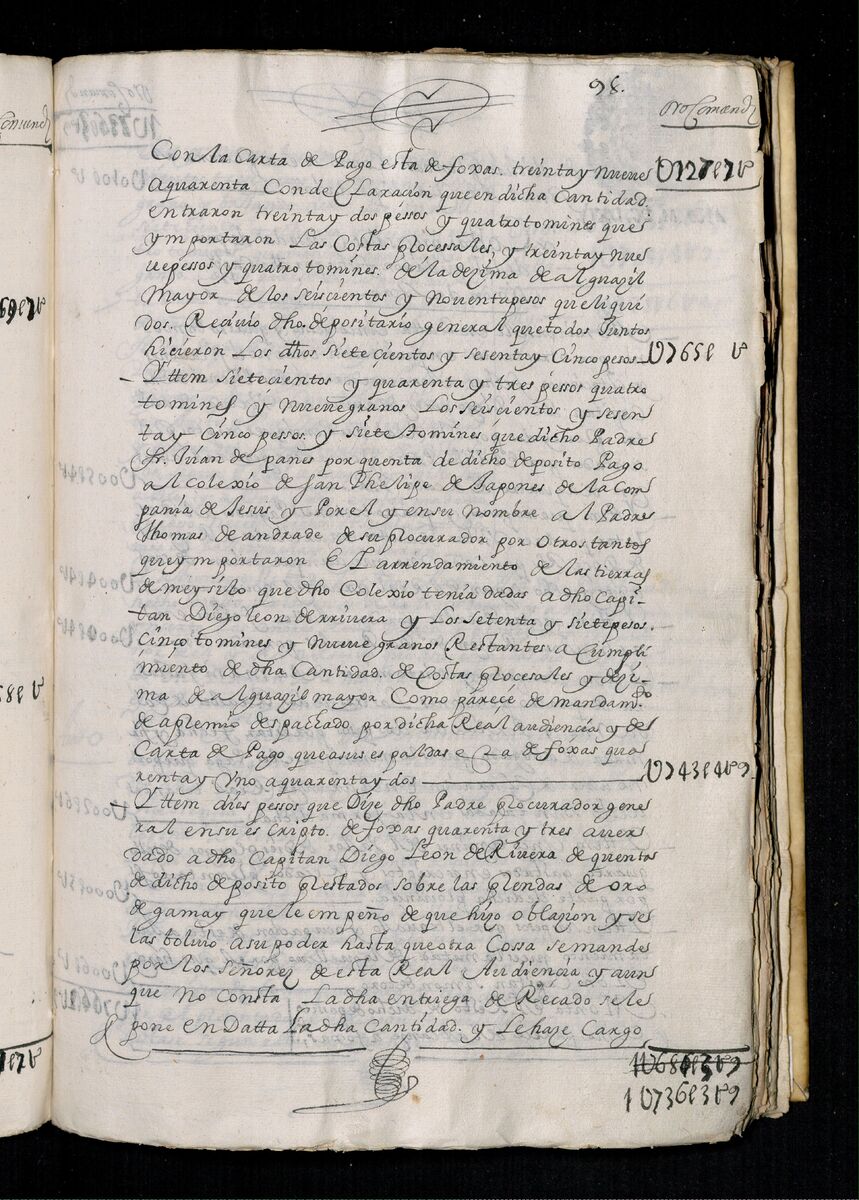 98.
Con la Carta de Pago esta de foxas. treinta y nueve
aquarenta Con de Claracion que en dicha Cantidad
entraron treinta y dos pessos y quatro tomines que
ymportaron Las Costas processales, y treinta y nue
ue pessos y quatro tomines. de la dezima de alguazil
Mayor de los seiscientos y Noventa pesos que liqui
dos. Reciuio dho. depositario general que todos Juntos
hicieron Los dhos siete cientos y sesenta y Cinco pesos U765l v
Yttem sietecientos y quarenta y tres pessos quatro
tomines y Nueve granos Los seiscientos y sesen
ta y Cinco pessos. y siete tomines que dicho Padre
fr. Juan de panes por quenta de dicho deposito Pago
al Colexio de San Phelipe de Japones de la Com
pania de Jesus y Por el y en su Nombre al Padre
thomas de andrade de su procurador por otros tantos
que ymportaron El arrendamiento de las tierras
de meysilo que dho Colexio tenia dadas a dho Capi-
tan Diego leon de rrivera y Los setenta y siete pesos.
Cinco tomines y Nueve granos Restantes a Cumpli
miento de dha Cantidad. de Costas procesales y dezi-
ma de alguazil mayor Como parece de mandam.to
de apremio despachado por dicha Real audiencia y de
Carta de Pago que a sus espaldas esta de foxas qua
renta y Vno a quarenta y dos U743l4v9
Yttem dies pessos que Dize dho Padre procurador gene
ral en su escripto. de foxas quarenta y tres aver
dado a dho Capitan Diego Leon de Rivera de quenta
de dicho deposito prestados sobre las prendas de oro
de gamay que le empeño de que hizo oblazion y se
las bolvio a su poder hasta que otra Cossa se mande
por los señores de esta Real Audiencia y aun
que No Consta La dha entriega de Recado se le
pone en Datta La dha Cantidad. y Le haze Cargo
1U736l3v9